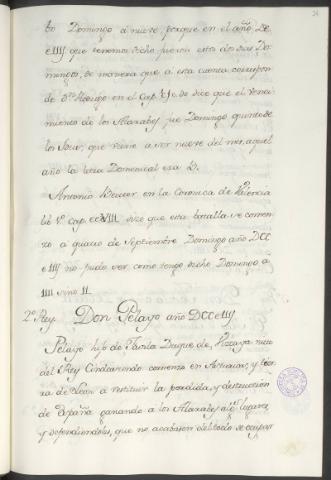 to Domingo à nueve porque en el año DC
cIIIJ que tenemos dicho fueron estos dos dias Do-
mingos, de manera que a esta cuenta correspon
de en el Cap. XI. do dice que el venci
miento de los Alarabes fue Domingo quinto de
los Idus, que viene a ser nueve del mes, aquel
año la letra Dominical era D.
Antonio Beuter en la Coronica de Valencia
lib. 1º Cap. ccVIII. dize que esta batalla se comen
zo a quatro de Septiembre Domingo año DCC
cIIIJ no pudo ser como tengo dicho Domingo à
IIII sino II.
2º Rey. Don Pelayo año DCCcIIIJ
Pelayo hijo de Favila Duque de Vizcaya nieto
del Rey Cindasvindo comenzo en Asturias, y tier
ra de Leon a restituir la perdida, y destruccion
de España ganando a los Alarabes algs. lugares
y defendiendolos, que no acabasen del todo de ocupar